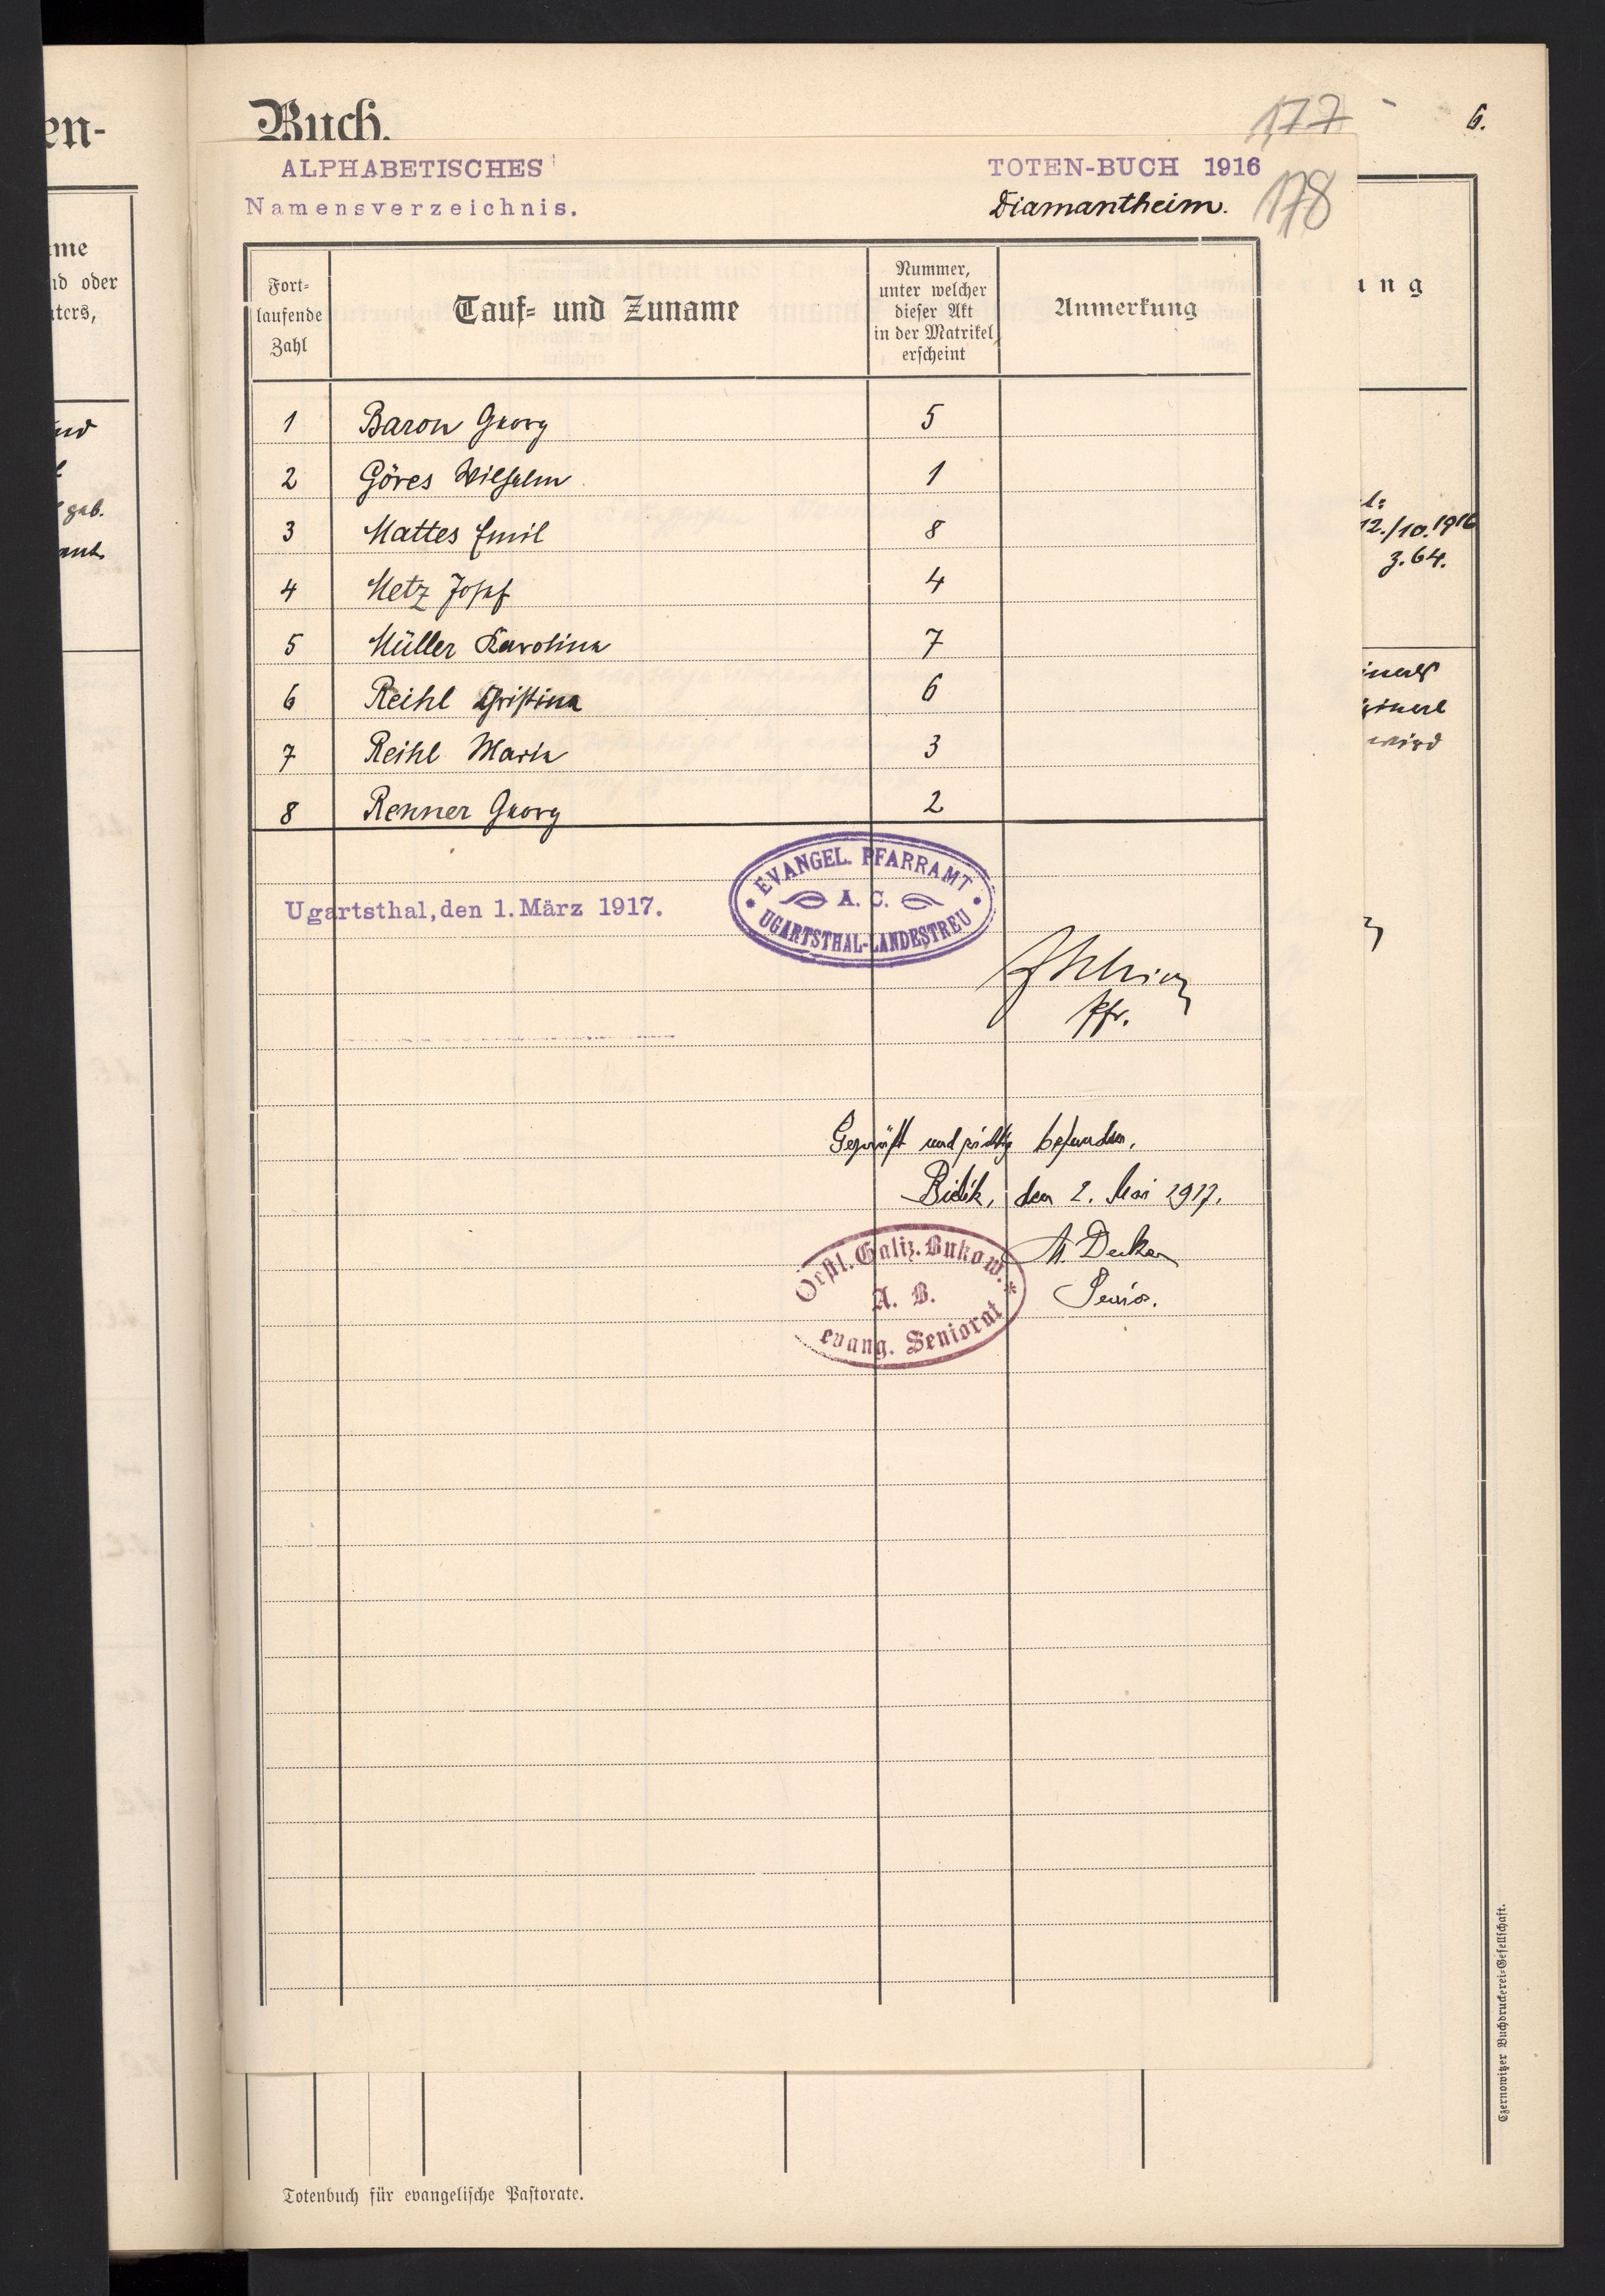 en-
Buch.
177
6.
ALPHABETISCHES
TOTEN-BUCH 1916
Namensverzeichnis.
Diamantheim.
178
me
nd oder
aters,
ung
Fort-
laufende
Zahl
Tauf- und Zuname
Nummer,
unter welcher
dieser Akt
in der Matrikel
erscheint
Anmerkung
1 Baron Georg 5
2 Göres Wilhelm 1
3 Mattes Emil 8
4 Metz Josef 4
5 Müller Karolina 7
6 Reihl Christina 6
7 Reihl Maria 3
8 Renner Georg 2
geb.
12./10.1916
z.64.
wird
EVANGEL. PFARRAMT
A. C.
UGARTSTHAL-LANDESTREU
Ugartsthal, den 1. März 1917.
Pfr.
Geprüft und richtig befunden.
den 2. Mai 1917.
Oestl. Galiz. Bukow.
A. B.
evang. Seniorat
M. Decker
Senior.
Totenbuch für evangelische Pastorate.
Czernowitzer Buchdruckerei-Gesellschaft.